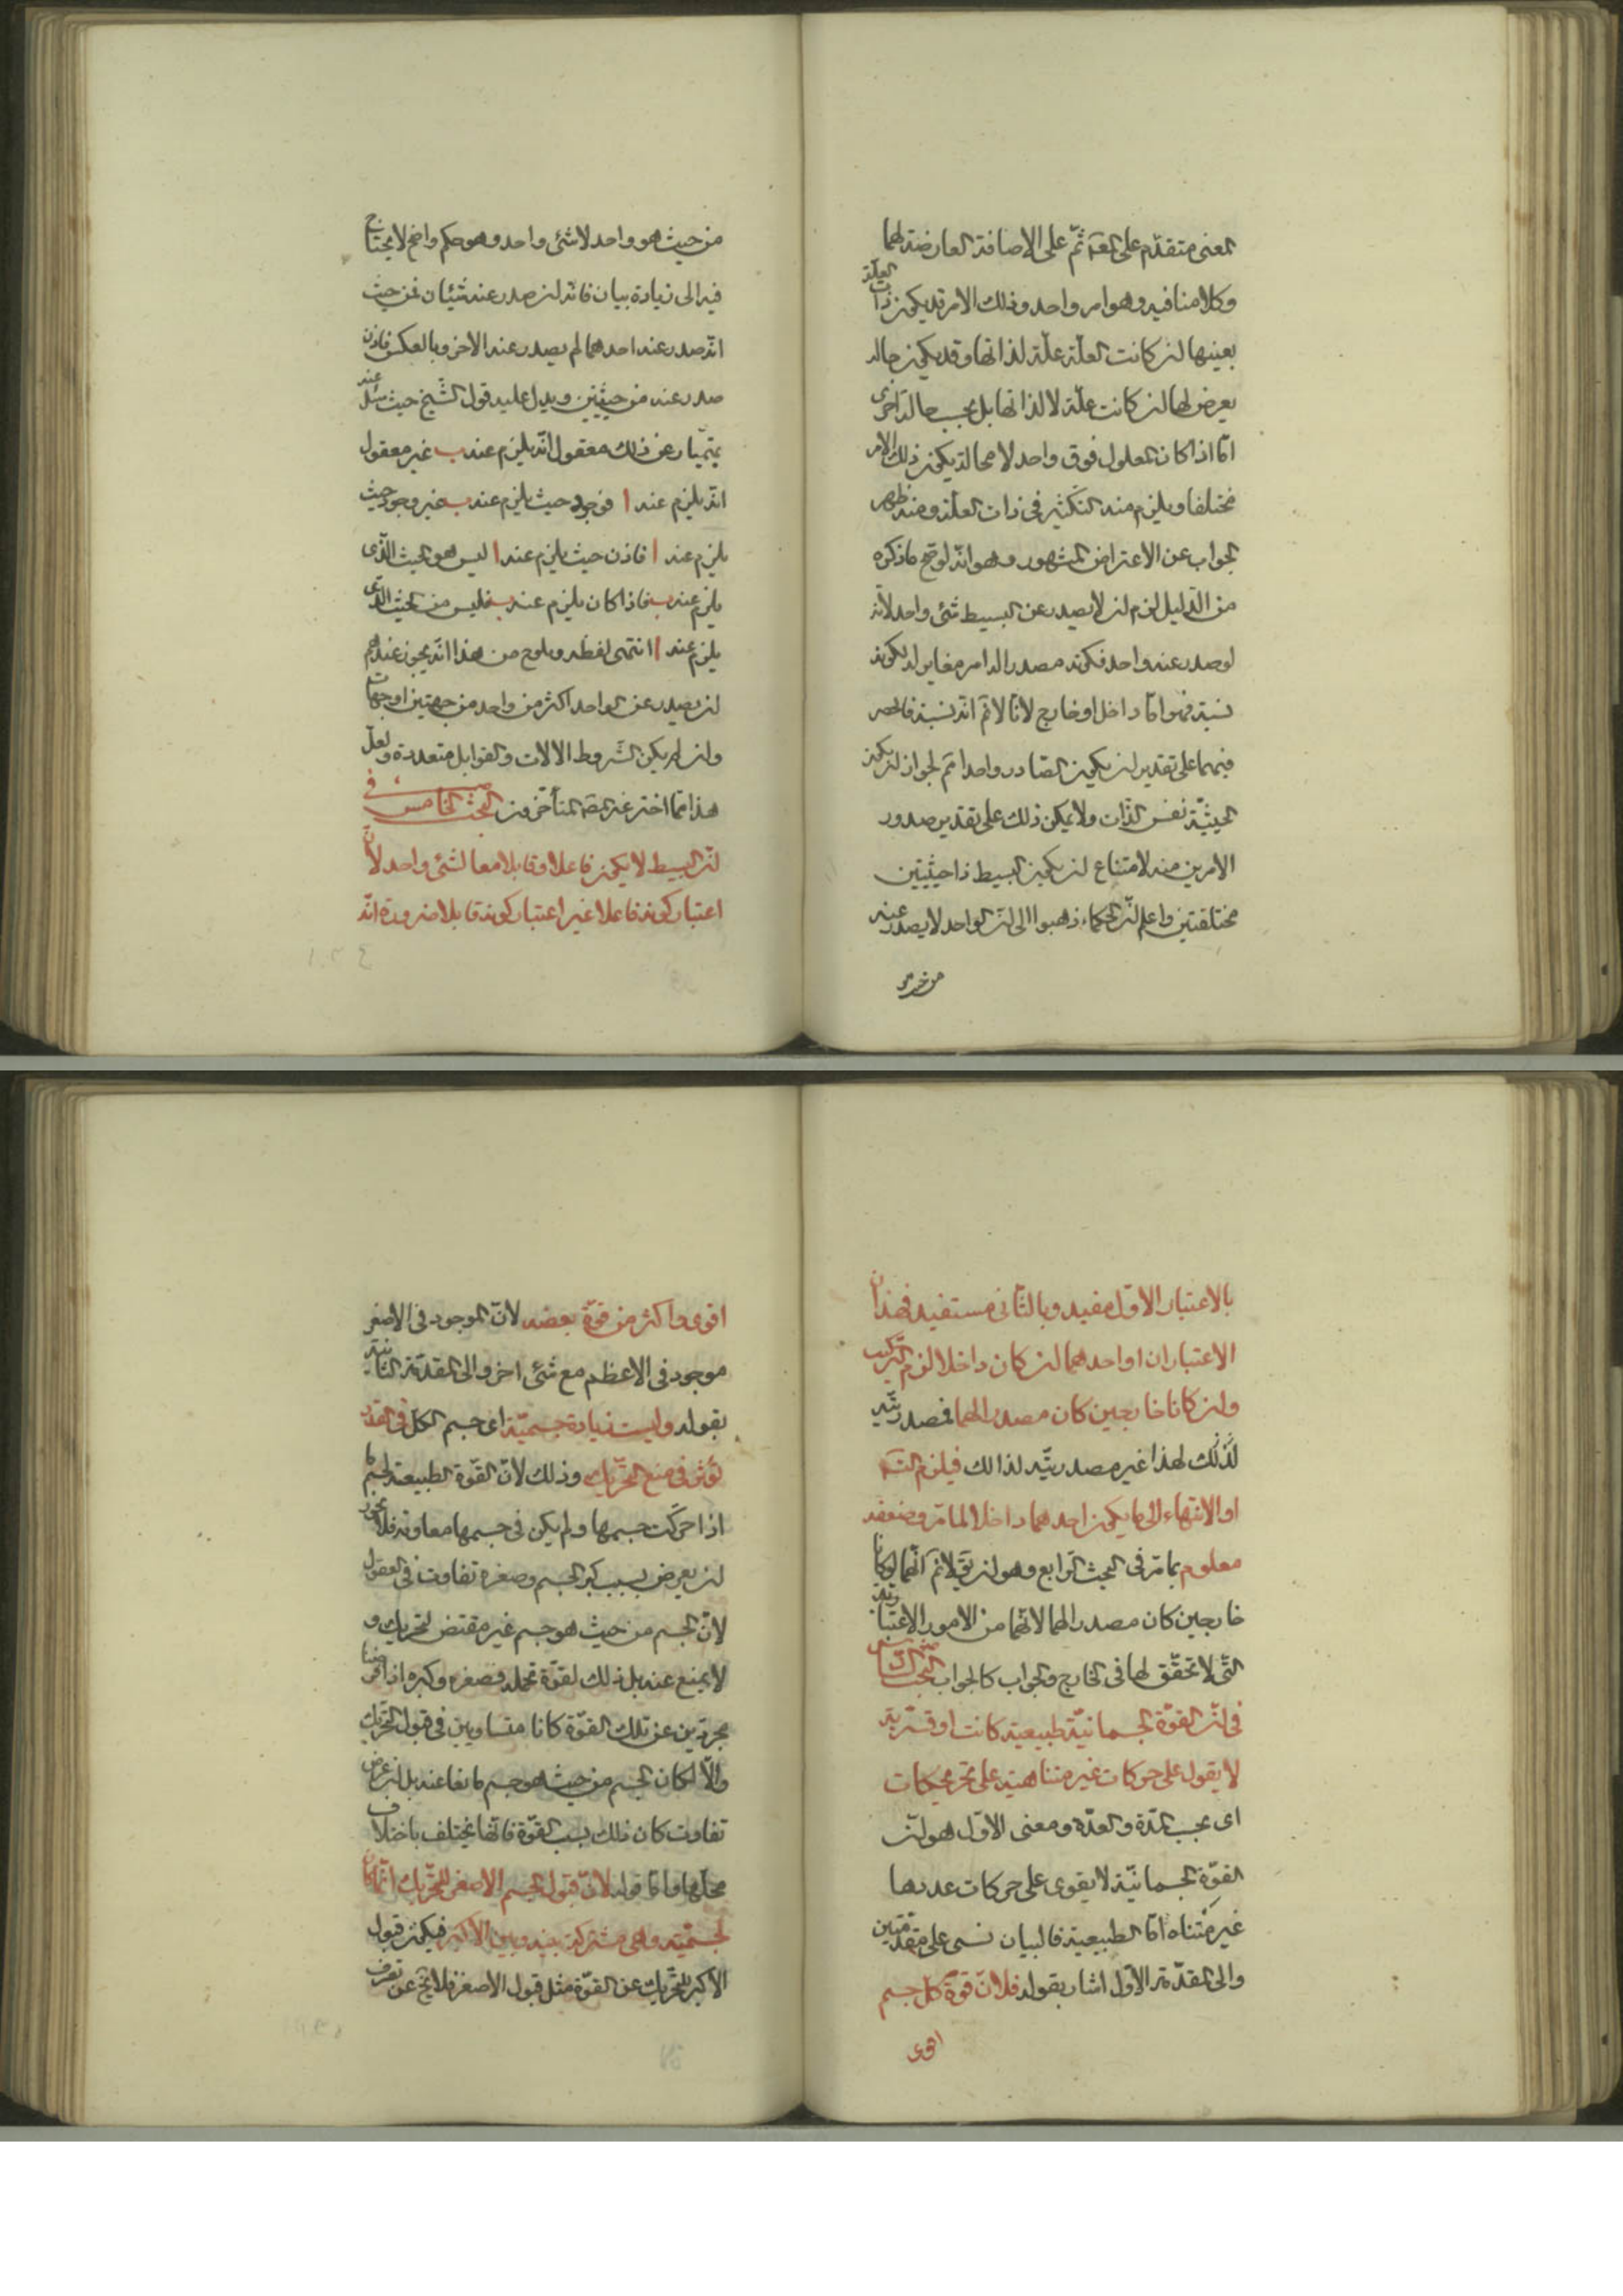 المعنى متقدّم على المعلول ثمّ على الاضافة العارضة لهما
وكلامنا فيه وهو امر واحد وذلك الامر قد يكون ذات العلّة
بعينها ان كانت العلّة علّة لذاتها وقد يكون حالة
يعرض لها ان كانت علّة لا لذاتها بل بحسب حالة اخرى
امّا اذا كان المعلول فوق واحد لا محالة يكون ذلك الامر
مختلفا ويلزم منه التكثير فى ذات العلّة ومنه ظهر
الجواب عن الاعتراض المشهور وهو انّه لو صحّ ما ذكره
من الدّليل لزم ان لا يصدر عن البسيط شئ واحد لانّه
لو صدر عنه واحد فكونه مصدرا له امر مغاير له لكونه
نسبة فهو امّا داخل او خارج لانّا لا نم انّه نسبة فالحصر
فيهما على تقدير ان يكون الصّادر واحدا مم لجواز ان يكون
الحيثيّة نفس الذّات ولا يمكن ذلك على تقدير صدور
الامرين منه لامتناع ان يكون البسيط ذا حيثيتين
مختلفتين واعلم انّ الحكماء ذهبوا الى انّ الواحد لا يصدر عنه
من حيث هو
من حيث هو واحد لا شئ واحد وهو حكم واضح لا يحتاج
فيه الى زيادة بيان فانّه ان صدر عنه شيئان فمن حيث
انّه صدر عنه احدهما لم يصدر عنه الاخر وبالعكس فاذن
صدر عنه من حيثيتين ويدل عليه قول الشّيخ حيث سئل عنه
بهمنيار عن ذلك معقول انّه يلزم عنه ب غير معقول
انّه يلزم عنه ا فوجود حيث يلزم عنه ب غير وجود حيث
يلزم عنه ا فاذن حيث يلزم عنه ا ليس هو الحيث الّذى
يلزم عنه ب فاذا كان يلزم عنه ب فليس من الحيث الّذى
يلزم عنه ا انتهى لفظه ويلوح من هذا انّه يجوز عندهم
ان يصدر عن الواحد اكثر من واحد من جهتين او جهات
وان لم يكن الشّروط الالات والقوابل متعددة ولعلّ
هذا ممّا اخترعته المتأخّرون البحث الخامس فى
انّ البسيط لا يكون فاعلا وقابلا معا لشئ واحد لانّ
اعتبار كونه فاعلا غير اعتبار كونه قابلا ضرورة انّه
بالاعتبار الاوّل مفيد وبالثّانى مستفيد فهذان
الاعتباران او احدهما ان كان داخلا لزم التركيب
وان كانا خارجين كان مصدرا لهما فمصدريّته
لذلك لهذا غير مصدريّته لذالك فيلزم التسّ
او الانتهاء الى ما يكون احدهما داخلا لما مرّ وضعفه
معلوم بما مرّ فى البحث الرّابع وهو ان يقال لا نم انّهما لو كانا
خارجين كان مصدرا لهما لانّهما من الامور الاعتباريّة
الّتى لا تحقّق لها فى الخارج والجواب كالجواب البحث السّادس
فى انّ القوّة الجسمانيّة طبيعية كانت او قسريّة
لا يقوى على حركات غير متناهية على تحريكات
اى بحسب المدّة والعدّة ومعنى الاوّل هو انّ
القوّة الجسمانيّة لا يقوى على حركات عددها
غير متناه امّا الطبيعية فالبيان يبنى على مقدّمتين
والى المقدّمة الاول اشار بقوله فلانّ قوّة كل جسم
اقوى
اقوى واكثر من قوّة بعضه لانّ الموجود فى الاصغر
موجود فى الاعظم مع شئ اخر والى المقدّمة الثانية
بقوله وليست زيادة جسميّة اى جسم الكل فى القدر
تؤثر فى منع التحريك وذلك لانّ القوّة الطبيعية لجسم ما
اذا حرّكت جسمها ولم يكن فى جسمها معاوقة فلا يجوز
ان يعرض بسبب كبر الجسم وصغره تفاوت فى القبول
لانّ الجسم من حيث هو جسم غير مقتض لتحريك و
لا يمنع عنه بل ذلك لقوّة تحلّه فصغره وكبره اذا فرضنا
مجردين عن تلك القوّة كانا متساويين فى قبول التحريك
والّا لكان الجسم من حيث هو جسم مانعا عنه بل ان عرض
تفاوت كان ذلك بسبب القوّة فانّها تختلف باختلاف
محالّها وامّا قوله لانّ قبول الجسم الاصغر للتحريك انّما كان
لجسميّته وهى مشتركة بينه وبين الاكبر فيكون قبول
الاكبر للتحريك عن القوّة مثل قبول الاصغر فلا يخ عن